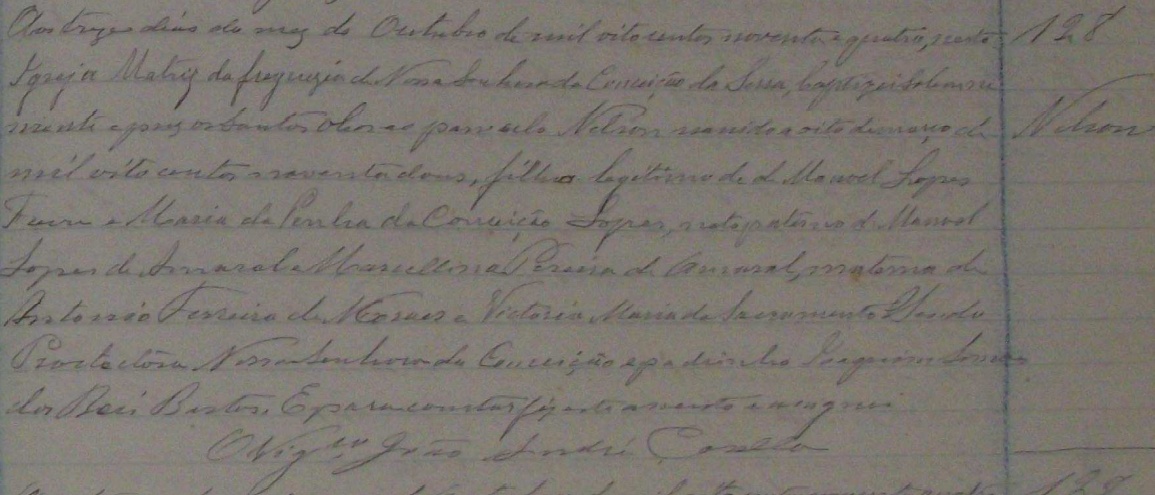 Aos treze dias do mez de Outubro de mil oito centos noventa e quatro, nesta 128
Igreja Matriz da freguezia de Nossa Senhora da Conceição da Serra, baptizei solemne
mente e puz os Santos Oleos ao parvulo Nelson nascido a oito de março de Nelson
mil oito centos noventa dous, filho legitimo de d. Manoel Lopes
e Maria da Penha da Conceição Lopes, neto paterno de Manoel
Lopes de Amaral e Marcellina Pereira de Amaral, materno de
Antonio Ferreira de Moraes e Victoria Maria do Sacramento
Protectora Nossa Senhora da Conceição e padrinho Joaquim
dos Reis Bastos. E para constar fiz este assento e assignei
O Vigr.º João André Casella
128